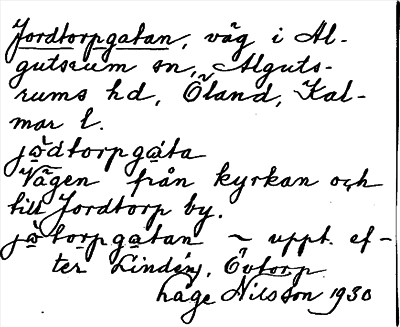 Jordtorpgatan, väg i Al-
gutsrum sn, Alguts-
rums hd, Öland, Kal-
mar l.
jo̱dtorpga̱ta
Vägen från kyrkan och
till Jordtorp by.
jo̱to̱rpga̱tan ~ uppt. ef-
ter Lindén, Övtorp.
Låge Nilsson 1930